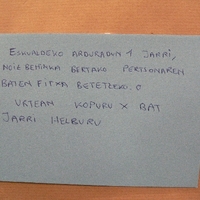 ESKUALDEKO ARDURADUN 1 JARRI,
NOIZ BEHINKA BERTAKO PERTSONAREN
BATEN FITXA BETETZEKO. O
URTEAN KOPURU X BAT
JARRI HELBURU